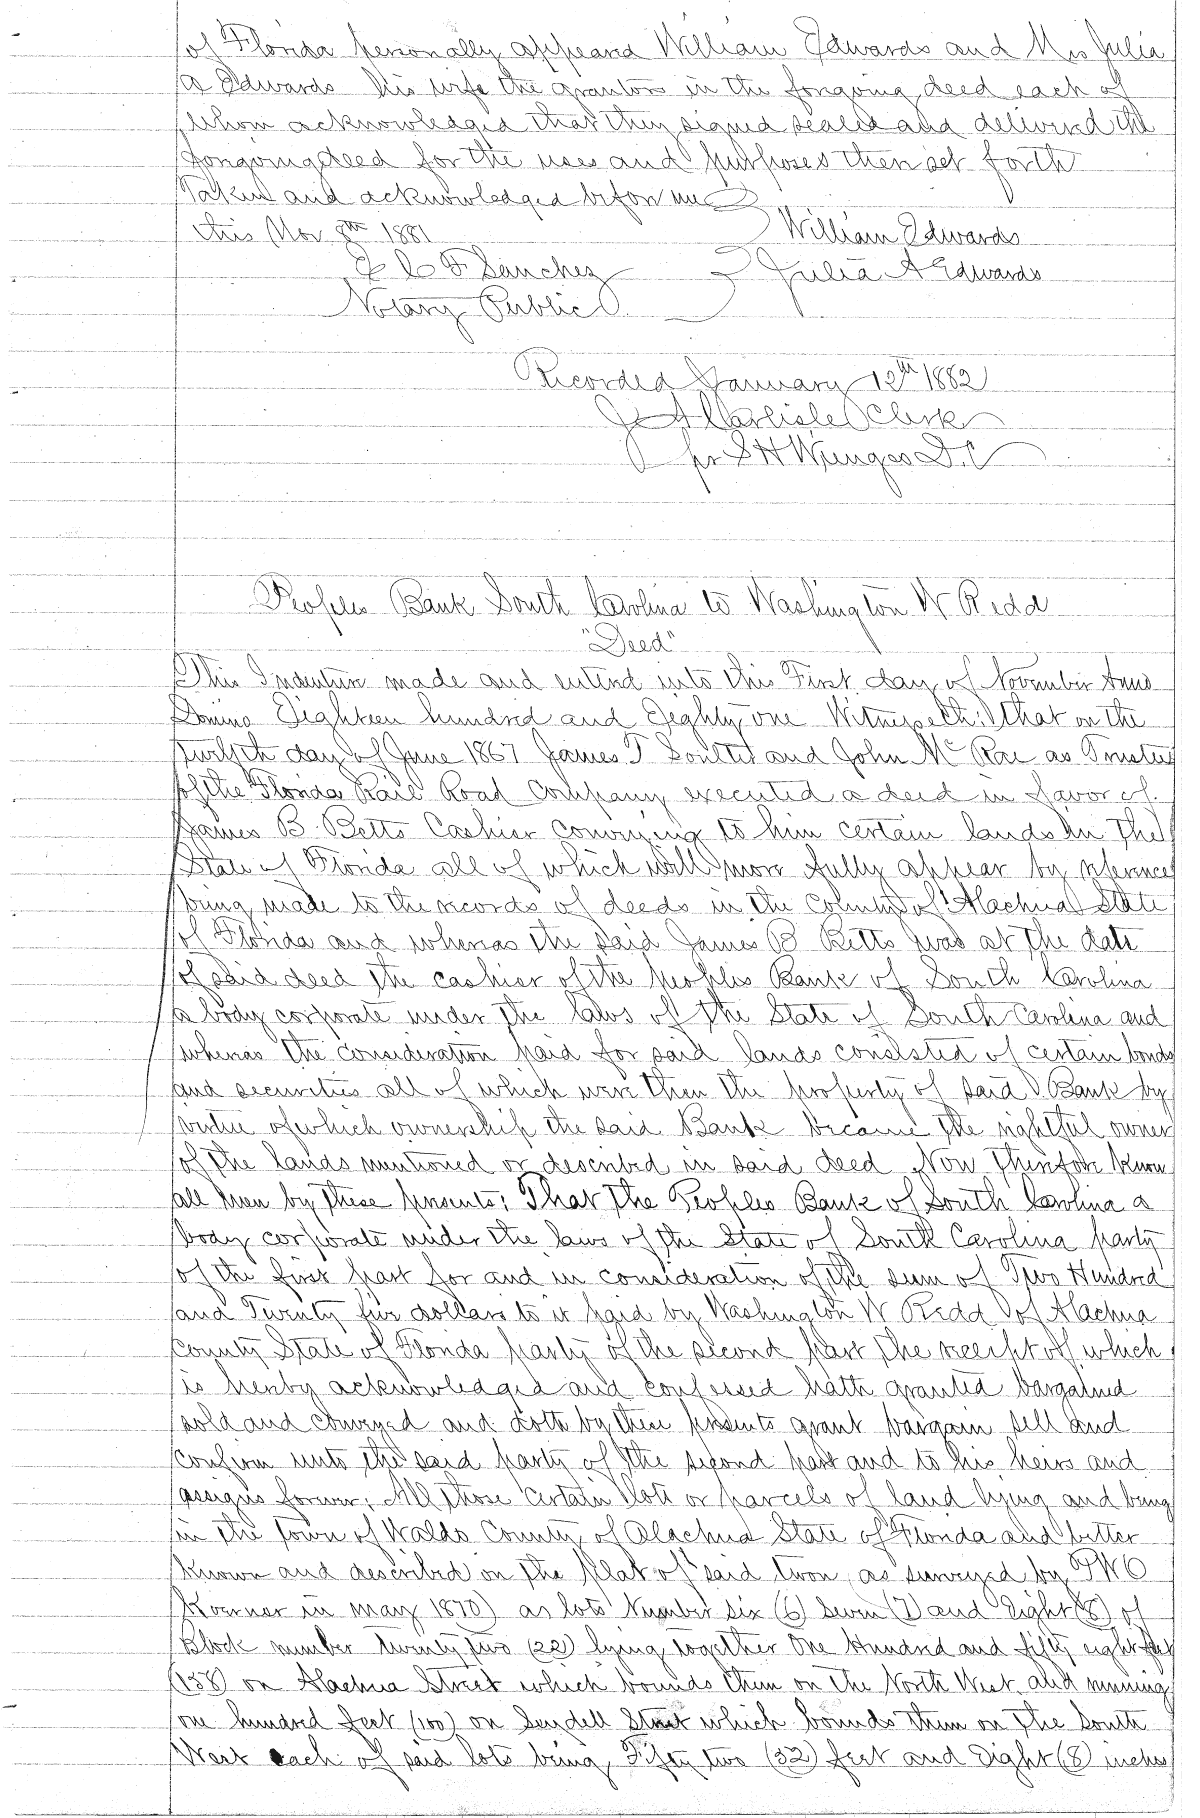 of Florida personally appeard William Edwards and Mrs Julia
A Edwards his wife the grantors in the forgoing deed each of
whom acknowledged that they signed sealed and deliverd the
forgoing deed for the uses and purposes then set forth
Taken and acknowledged before me
this Nov 8th 1881 William Edwards
F Sanchez Julia A Edwards
Notary Public
Recorded January 12th 1882
J A Carlisle Clerk
pr S H D.C
Peoples Bank South Carolina to Washington W Redd
"Deed"
This Indenture made and enterd into this First day of November Anno
Domino Eighteen hundred and Eighty one Witnesseth: that on the
twelfth day of June 1867 James T Soutter and John McRae as Trustees
of the Florida Rail Road Company executed a deed in favor of
James B Betts Cashier conveying to him certain lands in the
State of Florida all of which will more fully appear by reference
being made to the records of deeds in the County of Alachua State
of Florida and whereas the said James B Betts was at the date
of said deed the cashier of the peoples Bank of South Carolina
a body corporate under the laws of the State of South Carolina and
whereas the consideration paid for said lands consisted of certain bonds
and securities all of which were then the property of said Bank by
virtue of which ownership the said Bank became the rightful owner
of the lands mentioned or described in said deed Now therefore know
all men by these presents; That the Peoples Bank of South Carolina a
body corporate under the laws of the State of South Carolina party
of the first part for and in consideration of the sum of Two Hundred
and Twenty five dollars to it paid by Washington W Redd of Alachua
County State of Florida party of the second part the receipt of which
is hereby acknowledged and confessed hath granted bargained
sold and conveyed and doth by these presents grant bargain sell and
confirm unto the said party of the second part and to his heirs and
assigns forever; All those certain lots or parcels of land lying and being
in the town of Waldo County of Alachua State of Florida and better
known and described on the plat of said twon as surveyed by P W O
Koerner in may 1870) as lots Number six (6) seven (7) and Eight (8) of
Block number twenty two (22) lying together One Hundred and fifty eight feet
(158) on Alachua Street which bounds them on the North West and running
one hundred feet (100) on Sendell Street which bounds them on the South
West each of said lots being Fifty two (52) feet and Eight (8) inches